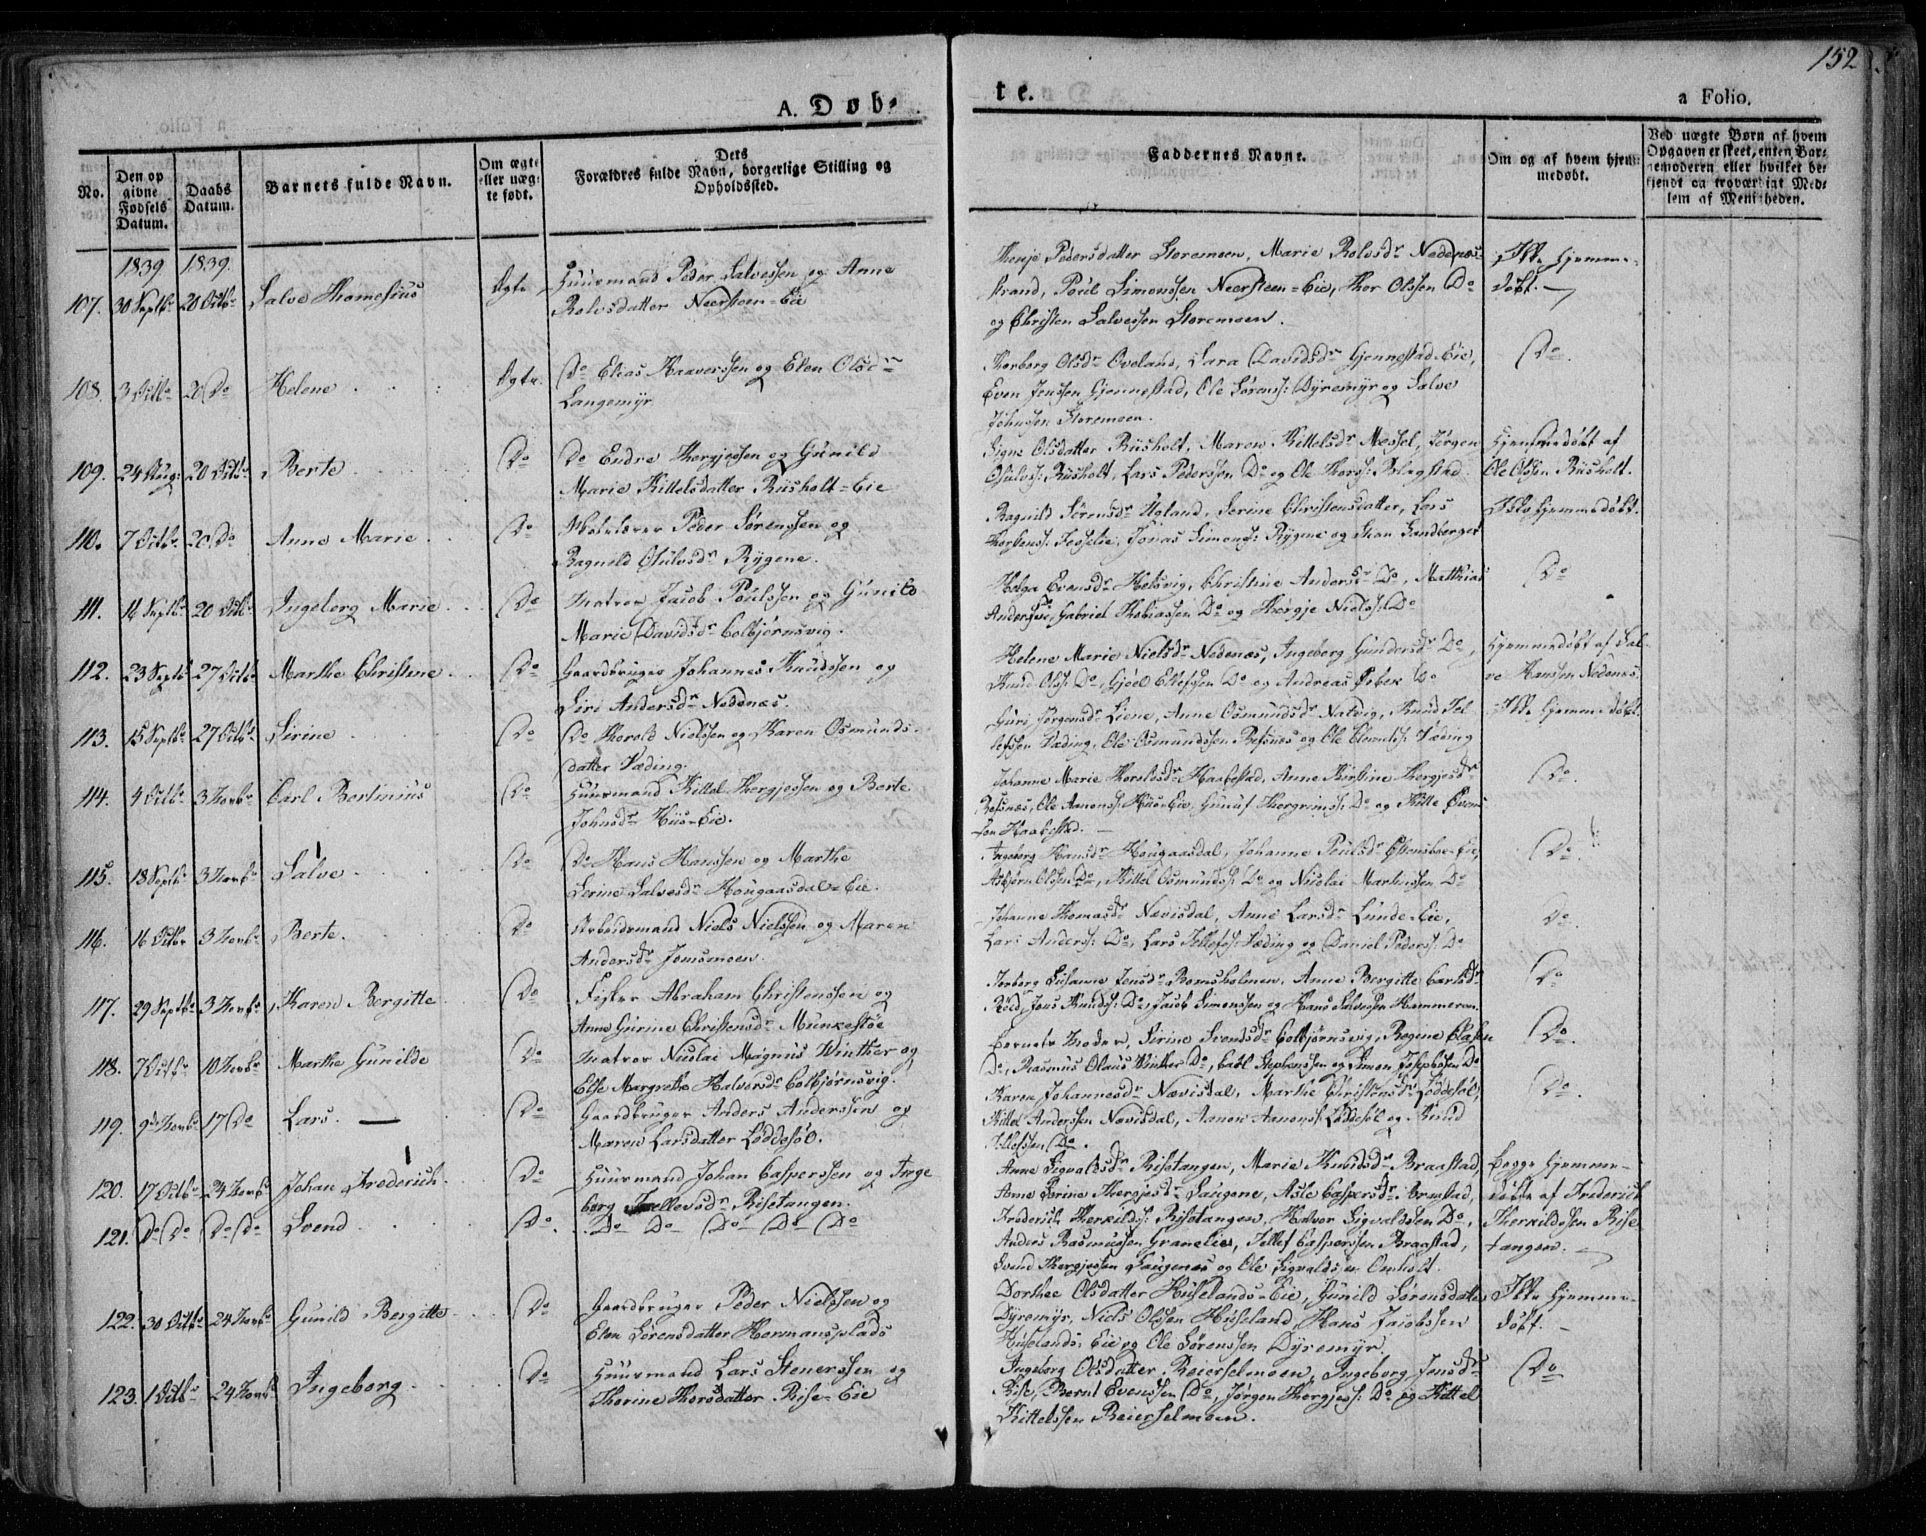 152
A. Døb-
te.
a Folio.
No.
Den op
givne
Fødsels
Datum.
Daabs
Datum.
Barnets fulde Navn.
Om ægte
eller uæg-
te født.
Dets
Forældres fulde Navn, borgerlige Stilling og
Opholdssted.
Faddernes Navne.
Om og af hvem hjem-
medøbt.
Ved uægte Børn af hvem
Opgaven er skeet, enten Bar-
nemoderen eller hvilket be-
kjendt og troværdigt Med-
lem af Menigheden.
1839 1839.
107. 30 Septbr 20 Octbr Salve Thomesius Ægte Huusmand Peder Salvessen og Anne
Rolvsdatter Neersteen-Eie
Pedersdatter Storemoen, Marie Rolvsdr Nedenæs-
strand, Poul Simonssen Neersteen-Eie, Thor Olssen Do
og Christen Salvessen Storemoen.
Ikke hjemme-
døbt.
108. 3 Octbr 20 Do Helene Ægte. Do Elias Raaverssen og Elen Olsdr
Langemyr
Thorborg Olsdr Oveland, Sara Davidsdr Gjennestad-Eie,
Even Jenssen Gjennestad, Ole Sørens: Dyremyr og Salve
Johnssen Storemoen.
Do.
109. 24 Aug: 20 Octbr Berte Do Do Endre Thergjessen og Gunild
Marie Kittelsdatter Riisholt-Eie
Signe Olsdatter Riisholt, Maren Kittelsdr Messel, Jørgen
Osulvs: Riisholt, Lars Pederssen Do og Ole Thors: Blagstad
Hjemmedøbt af
Ole Olssen Riisholt.
110. 7 Octbr 20 Do Anne Marie Do Skolelærer Peder Sørenssen og
Ragnild Osulvsdr Rygene.
Ragnild Sørensdr Ugland, Serine Christensdatter, Lars
Thorbens: Fosselie, Jonas Simons: Rygene og Stian Sandberget
Ikke hjemmedøbt.
111. 16 Septbr 20 Octbr Ingeborg Marie Do Matros Jacob Poulssen og Gunild
Marie Davidsdr Colbjørnsvig.
Helga Evensdr Helsvig, Christine Andersdr Do, Matthias
Anderssen, Gabriel Thobiassen Do og Thergje Niels: Do
Do
112. 23 Septbr 27 Octbr Marthe Christine Do Gaardbruger Johannes Knudssen og
Siri Andersdr Nedenæs.
Helene Marie Nielsdr Nedenæs, Ingeborg Gundersdr Do,
Knud Ols: Do, Gjoel Ellefssen Do og Andreas Do
Hjemmedøbt af Sal-
ve Hanssen Nedenæs.
113. 15 Septbr 27 Octbr Sirine Do Do Thorold Nielssen og Karen Osmunds-
datter Væding.
Guri Jørgensdr Liene, Anne Osmundsdr Natvig, Knud Tel
lefsen Væding, Ole Osmundssen Refsnes og Ole Clements: Væding
Ikke hjemmedøbt.
114. 4 Octbr 3 Novbr Carl Bertinius Do Huusmand Kittel Thergjessen og Berte
Johnsdr Hiis-Eie.
Johanne Marie Thoroldsdr Haabestad, Anne Kirstine Thergjesdr
Refsnæs, Ole Aanons: Hiis-Eie, Gunuf Thorgrims: Do og Kittel Evens-
sen Haabestad.
Do.
115. 18 Septbr 3 Novbr Salve Do Do Hans Hanssen og Marthe
Serine Salvesdr Hougaasdal-Eie.
Ingeborg Hansdr Hougaasdal, Johanne Poulsdr Østensboe-Eie,
Asbjørn Olssen Do, Kittel Osmunds: Do og Nicolai Martinssen Do
Do.
116. 16 Octbr 3 Novbr Berte. Do Arbeidsmand Niels Nielssen og Maren
Andersdr Jomsmoen.
Johanne Thomasdr Nævisdal, Anne Larsdr Lunde-Eie,
Lars Anders: Do, Lars Tellefs: Væding og Daniel Peders: Do
Do.
117. 29 Septbr 3 Novbr Karen Bergitte Do Fisker Abraham Christenssen og
Anne Gurine Christensdr Munkestøe
Torborg Susanne Jensdr Bomsholmen, Anne Bergitte Carlsdr
Jens Knuds: Do, Jacob Simonssen og Hans Salvesen Hammeren
Do
118. 7 Octbr 10 Novbr Marthe Gunilde Do Matros Nicolai Magnus Winther og
Else Margrethe Halvorsdr Colbjørnsvig.
Barnets Moder, Sirine Svendsdr Colbjørnsvig, Regine Olssen
Do, Rasmus Olaus Winther Do, Carl Stephanssen og Simon Josephsen Do
Do.
119. 9de Novbr 17 Do Lars. Do Gaardbruger Anders Anderssen og
Maren Larsdatter Løddesøl.
Karen Johannesdr Nævisdal, Marthe Christensdr Løddesøl,
Kittel Anderssen Nævisdal, Aanon Aanons: Løddesøl og Knud
Tellefssen Do.
Do.
120. 17 Octbr 24 Novbr Johan Frederich Do Huusmand Johan Casperssen og Inge
borg Tellevsdr Risetangen.
121. Do Do Do Do Svend Do. Do Do Do Do Do
Anne Sigvaldsdr Risetangen, Marie Knudsdr Braastad,
Anne Serine Thergjesdr Saugene, Asle Caspersdr Braastad,
Frederich Therkilds: Risetangen, Halvor Sigvaldssen Do,
Anders Rasmussen Granelien, Tellef Casperssen Braastad,
Svend Thergjessen Saugenes og Ole Sigvaldssen Omholt.
Begge hjemme-
døbte af Frederich
Therkildssen Rise
tangen.
122. 30 Octbr 24 Novbr Gunild Bergitte Do Gaardbruger Peder Nielssen og
Elen Sørensdatter Hermansplads
Dorthee Olsdatter Huselands-Eie, Gunild Sørensdatter
Dyremyr, Niels Olssen Huseland, Hans Jacobssen
Huselands Eie og Ole Sørenssen Dyremyr.
Ikke hjemme-
døbt.
123. 1 Octbr 24 Novbr Ingeborg Do Huusmand Lars Stenerssen og
Thorine Thorsdatter Rise-Eie
Ingeborg Olsdatter Reierselmoen, Ingeborg Jensdr
Rise, Bernt Evenssen Do, Jørgen Thergjess: Do og Kittel
Kittelssen Reierselmoen.
Do